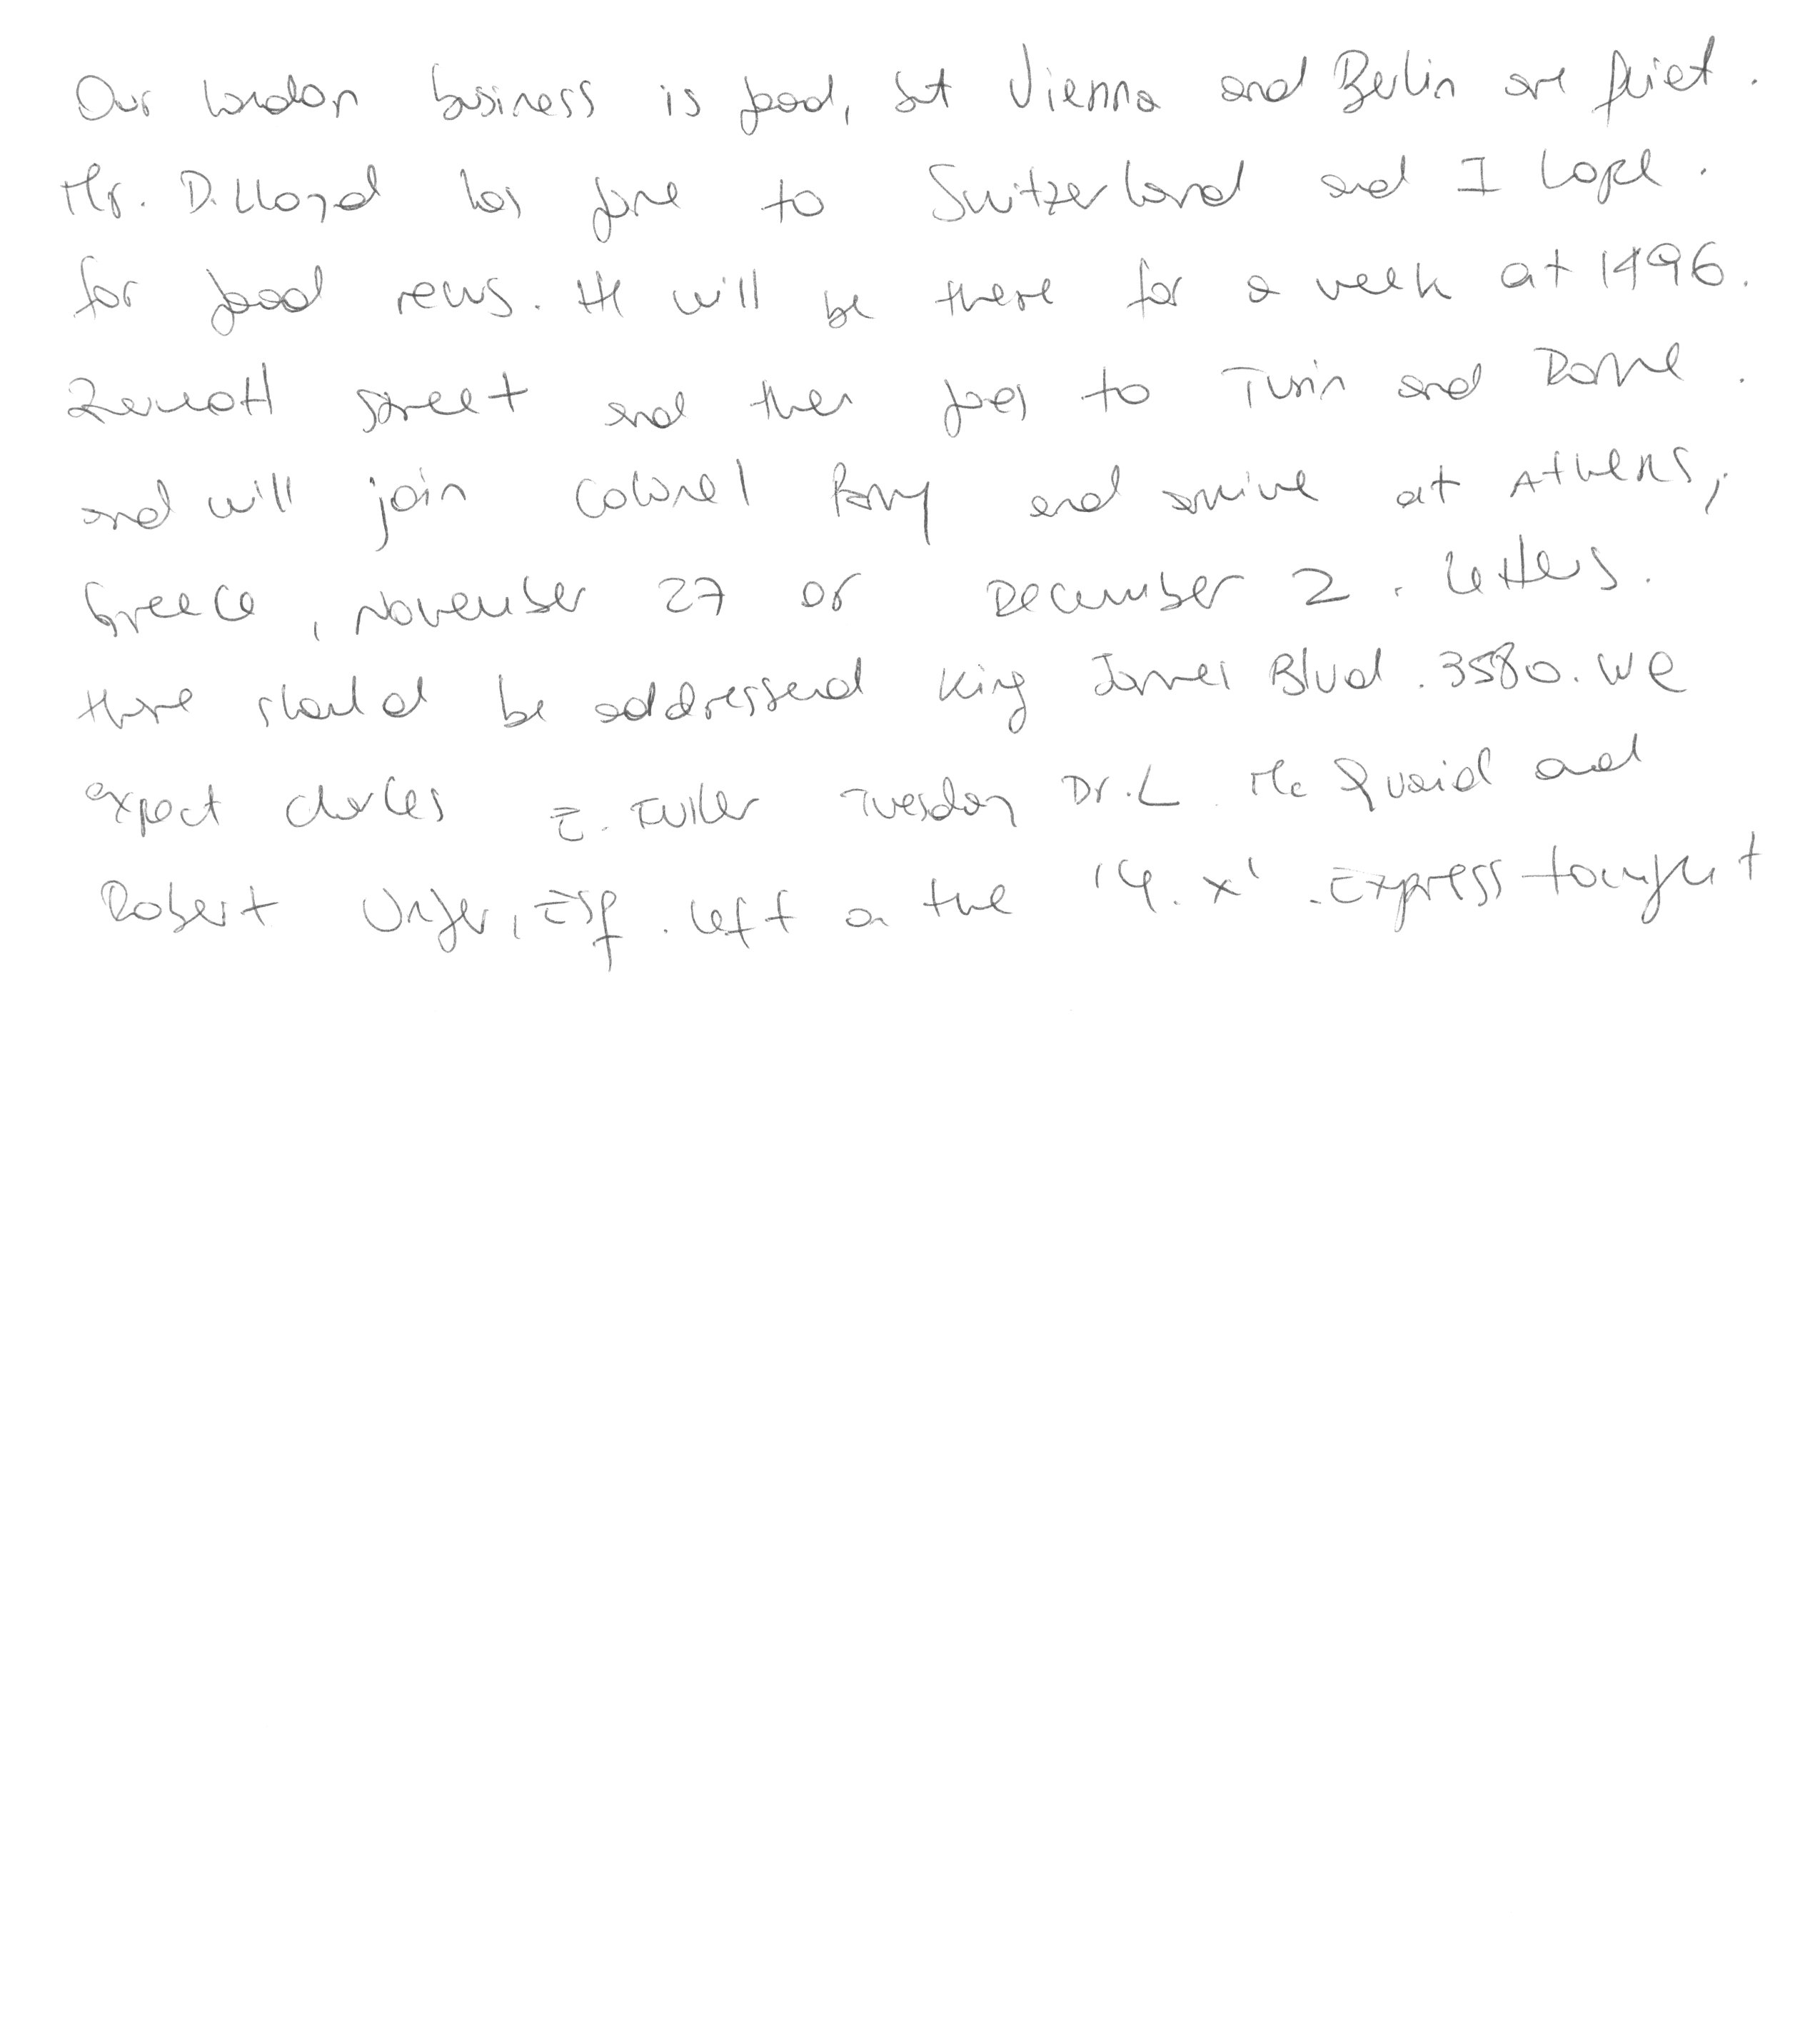 Our London business is good, but Vienna and Berlin are quiet.
Mr. D. Lloyd has gone to Switzerland and I hope.
for good news. He will be there for a week at 1496.
Zermott street and then goes to Turin and Rome.
and will join Colonel Parry and arrive at Athens,
Greece, November 27 or December 2. Letters.
there should be addressed King James Blvd. 3580. We
expect Charles E. Fuller Tuesday Dr. L. Mc Quaid and
Robert Unger, Esq. left on the 'Y. X' Express tonight